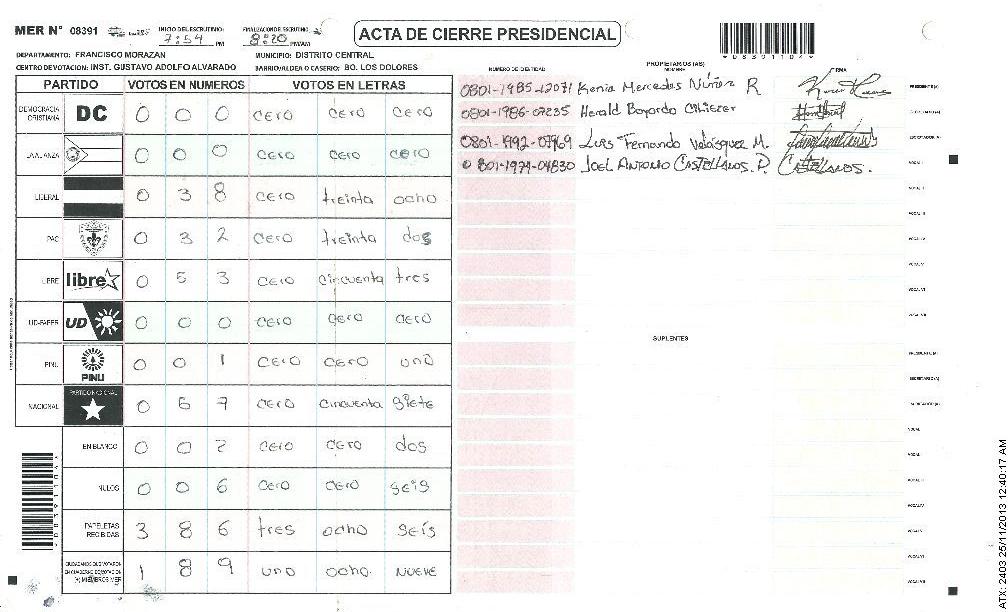 MER Nº 08391 INICIO DEL ESCRUTINIO: 7:54 PM FINALIZACION DE ESCRUTINIO: 8:20 PM/AM ACTA DE CIERRE PRESIDENCIAL
DEPARTAMENTO: FRANCISCO MORAZAN MUNICIPIO: DISTRITO CENTRAL
CENTRO DE VOTACION: INST. GUSTAVO ADOLFO ALVARADO BARRIO/ALDEA O CASERIO: BO. LOS DOLORES
PARTIDO VOTOS EN NUMEROS VOTOS EN LETRAS
DEMOCRACIA CRISTIANA DC 0 0 0 cero cero cero
LA ALIANZA 0 0 0 cero cero cero
LIBERAL 0 3 8 cero treinta ocho
PAC 0 3 2 cero treinta dos
LIBRE libre 0 5 3 cero cincuenta tres
UD-FAPER UD 0 0 0 cero cero cero
PINU PINU 0 0 1 cero cero uno
NACIONAL PARTIDO NACIONAL 0 5 7 cero cincuenta siete
EN BLANCO 0 0 2 cero cero dos
NULOS 0 0 6 cero cero seis
PAPELETAS RECIBIDAS 3 8 6 tres ocho seis
CIUDADANOS QUE VOTARON EN CUADERNO DE VOTACION (+) MIEMBROS MER 1 8 9 uno ocho nueve
NUMERO DE IDENTIDAD PROPIETARIOS (AS) NOMBRE FIRMA
0801-1985-12071 Kenia Mercedes Núñez R PRESIDENTE (A)
0801-1986-07235 Herald Bojordo SECRETARIO (A)
0801-1992-07969 Luis Fernando Velásquez M. ESCRUTADOR (A)
0801-1974-04830 JOEL ANTONIO CASTELLANOS. P. CASTELLANOS. VOCAL I
VOCAL II
VOCAL III
VOCAL IV
VOCAL V
VOCAL VI
VOCAL VII
SUPLENTES
PRESIDENTE (A)
SECRETARIO (A)
ESCRUTADOR (A)
VOCAL I
VOCAL II
VOCAL III
VOCAL IV
VOCAL V
VOCAL VI
VOCAL VII
ATX: 2403 25/11/2013 12:40:17 AM